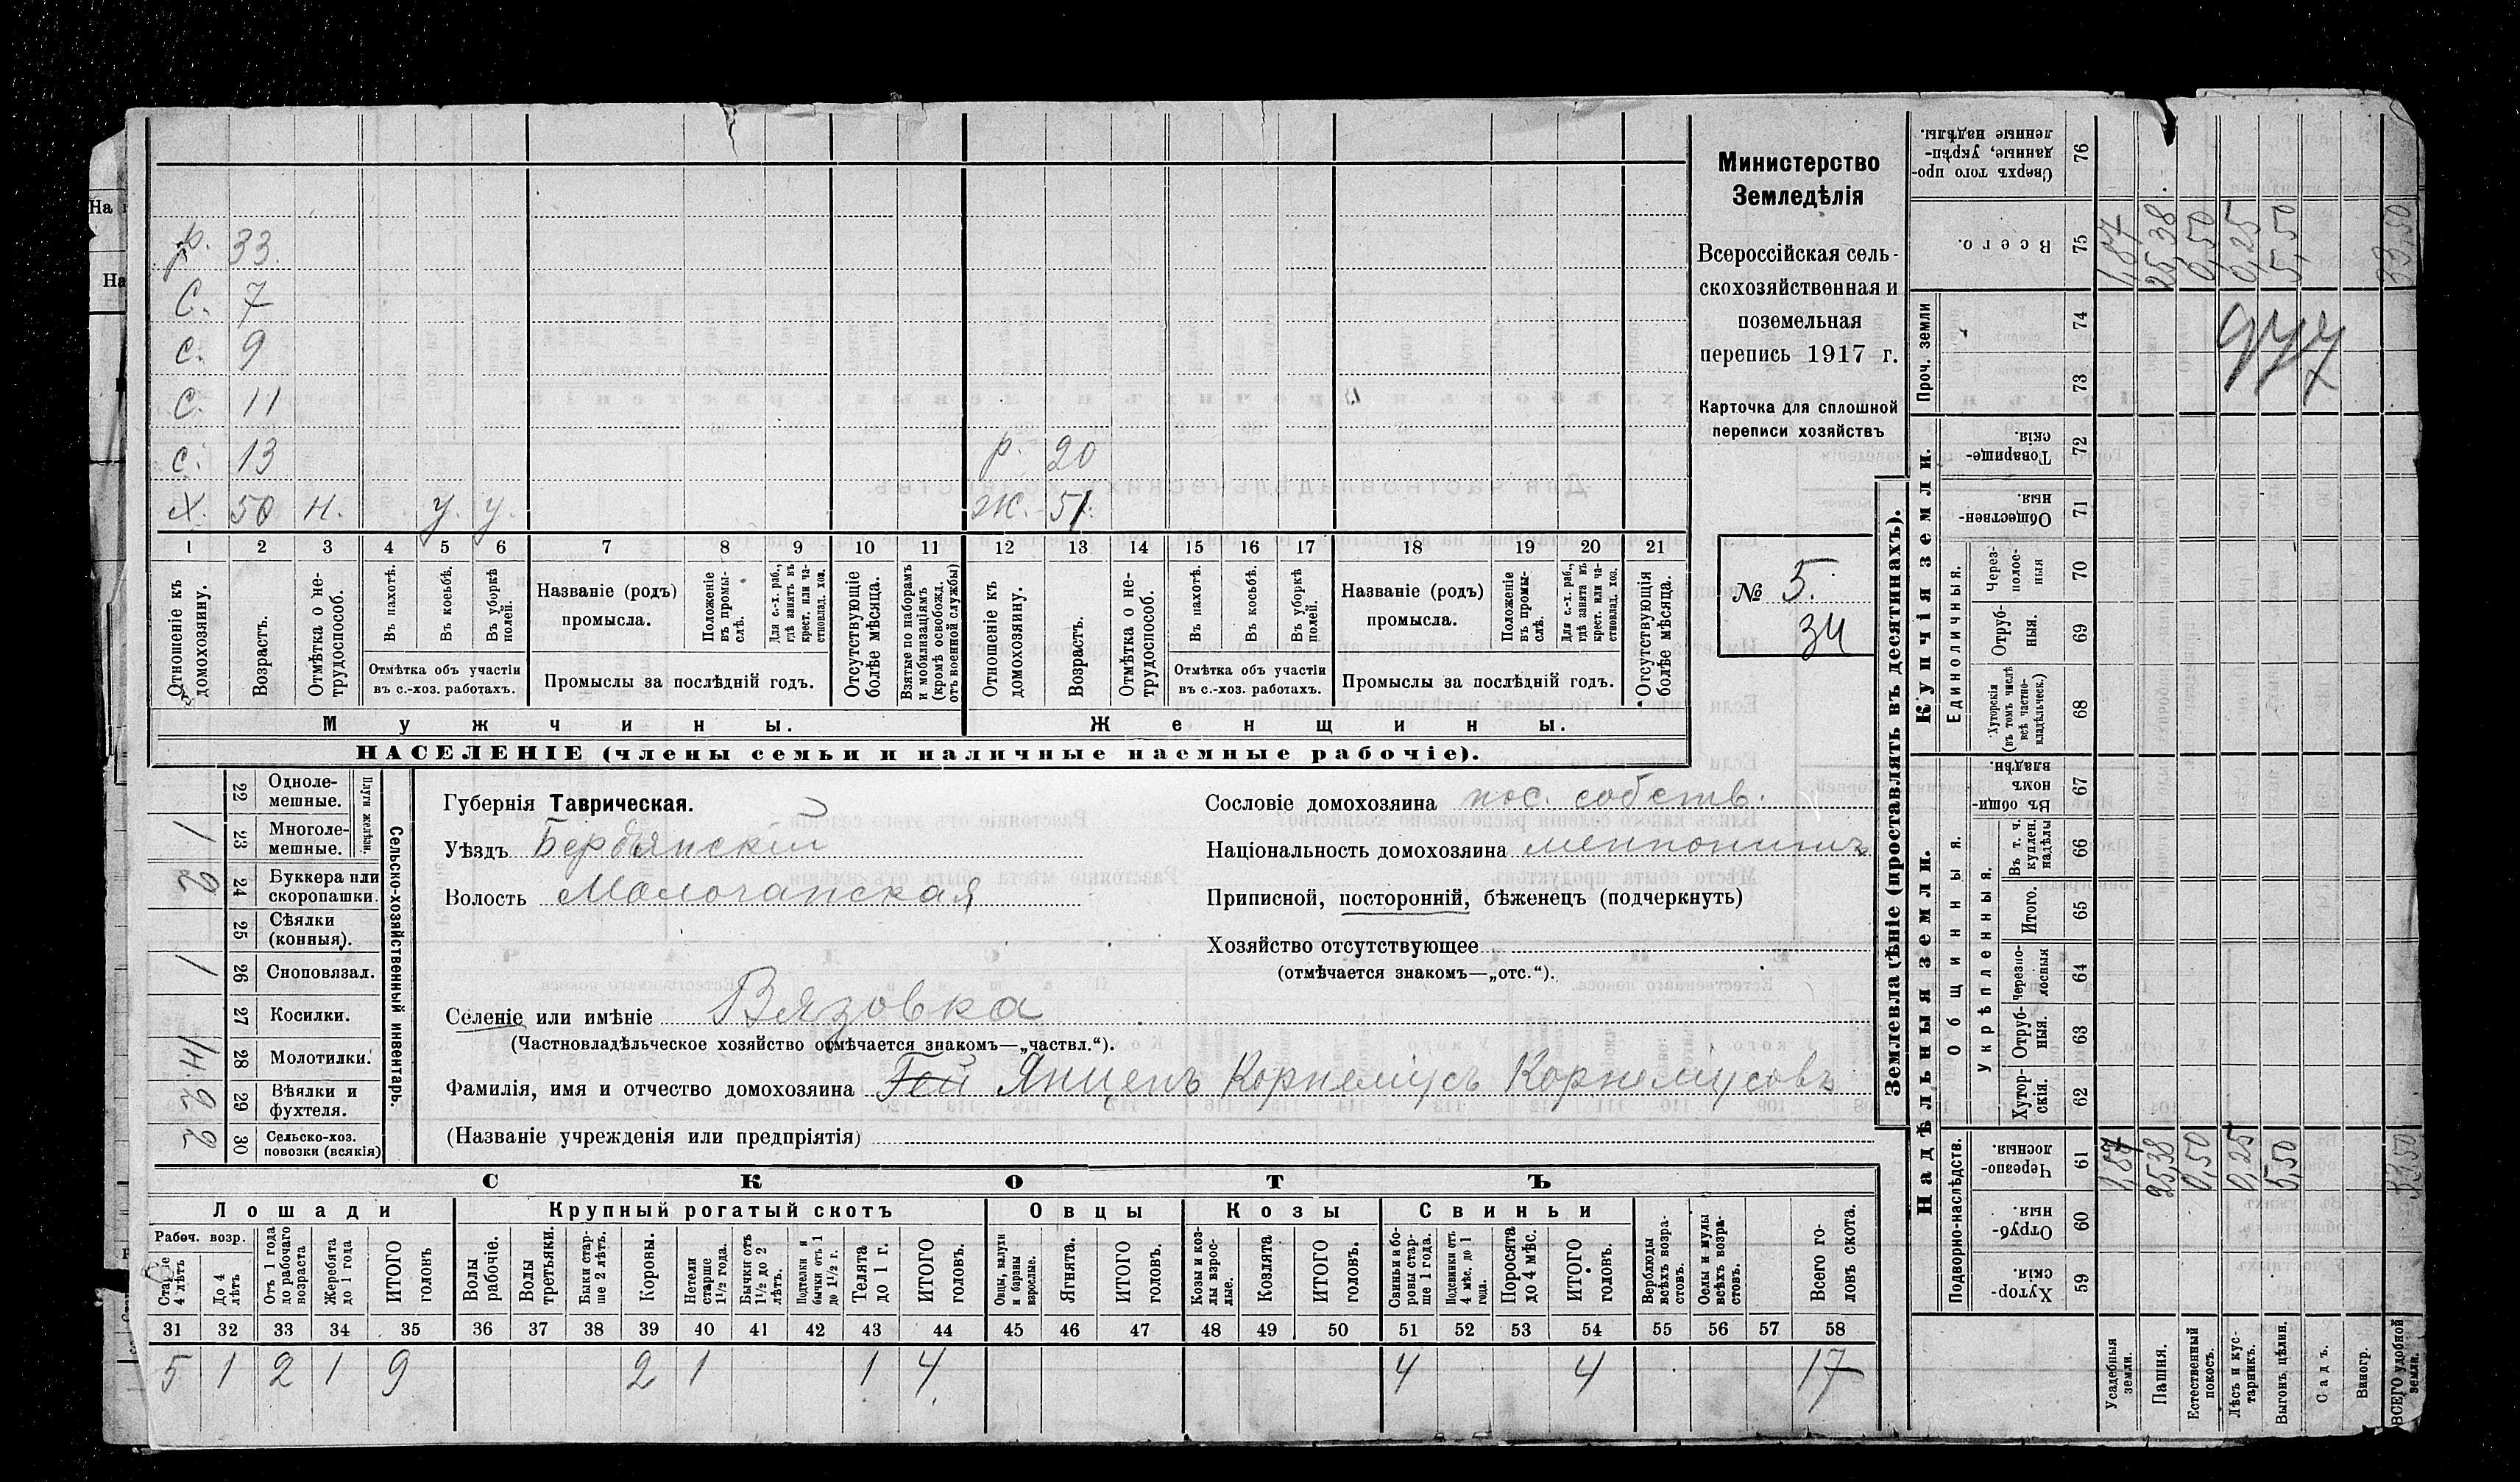 Министерство
Земледѣлія
Всероссійская сель-
скохозяйственная и
поземельная
перепись 1917 г.
Карточка для сплошной
переписи хозяйствъ
№ 5.
34
р. 33.
С. 7
с. 9
С. 11
с. 13 р. 20
Х. 50 н. у. у. Ж. 51.
1 2 3 4 5 6 7 8 9 10 11 12 13 14 15 16 17 18 19 20 21
Отношеніе къ домохозяину.
Возрастъ.
Отмѣтка о не-трудоспособ.
Въ пахотѣ.
Въ косьбѣ.
Въ уборкѣ полей.
Отмѣтка объ участіи
въ с.-хоз. работахъ.
Названіе (родъ)
промысла.
Положеніе въ промы-слѣ.
Для с.-х. раб., гдѣ занятъ въ крест. или ча-стновлад. хоз.
Промыслы за послѣдній годъ.
Отсутствующіе болѣе мѣсяца.
Взятые по наборамъ и мобилизаціямъ (кромѣ освобожд. отъ военной службы)
Отношеніе къ домохозяину.
Возрастъ.
Отмѣтка о не-трудоспособ.
Въ пахотѣ.
Въ косьбѣ.
Въ уборкѣ полей.
Отмѣтка объ участіи
въ с.-хоз. работахъ.
Названіе (родъ)
промысла.
Положеніе въ промы-слѣ.
Для с.-х. раб., гдѣ занята въ крест. или ча-стновлад. хоз.
Промыслы за послѣдній годъ.
Отсутствующія болѣе мѣсяца.
Мужчины. Женщины.
НАСЕЛЕНІЕ (члены семьи и наличные наемные рабочіе).
Сельско-хозяйственный инвентарь.
Плуги желѣзн.
22 Одноле-мешные.
1 23 Многоле-мешные.
2 24 Буккера или скоропашки.
25 Сѣялки (конныя).
1 26 Сноповязал.
27 Косилки.
28 Молотилки.
2 29 Вѣялки и фухтеля.
2 30 Сельско-хоз. повозки (всякія)
Губернія Таврическая.
Уѣздъ Бердянскій
Волость Молочанская
Селеніе или имѣніе Вязовка
(Частновладѣльческое хозяйство отмѣчается знакомъ—„частвл.“).
Фамилія, имя и отчество домохозяина Гей Янценъ Корнелиусъ Корнелиусовъ
(Названіе учрежденія или предпріятія)
Сословіе домохозяина пос. собств.
Національность домохозяина меннонитъ
Приписной, посторонній, бѣженецъ (подчеркнуть)
Хозяйство отсутствующее
(отмѣчается знакомъ—„отс.“).
СКОТЪ
Лошади Крупный рогатый скотъ Овцы Козы Свиньи
Рабоч. возр.
Старше 4 лѣтъ
До 4 лѣтъ
Отъ 1 года до рабочаго возраста
Жеребята до 1 года
ИТОГО головъ
Волы рабочіе.
Волы третьяки.
Быки стар-ше 2 лѣтъ.
Коровы.
Нетели старше 1½ года.
Бычки отъ 1½ до 2 лѣтъ.
Подтелки и бычки отъ 1 до 1½ г.
Телята до 1 г.
ИТОГО головъ.
Овцы, валухи и бараны взрослые.
Ягнята.
ИТОГО головъ.
Козы и коз-лы взрос-лые.
Козлята
ИТОГО головъ.
Свиньи и бо-ровы стар-ше 1 года.
Подсвинки отъ 4 мѣс. до 1 года.
Поросята до 4 мѣс.
ИТОГО головъ.
Верблюды всѣхъ возра-стовъ.
Ослы и мулы всѣхъ возра-стовъ.
Всего го-ловъ скота.
31 32 33 34 35 36 37 38 39 40 41 42 43 44 45 46 47 48 49 50 51 52 53 54 55 56 57 58
5 1 2 1 9 2 1 1 4 4 4 17
Землевладѣніе (проставлять въ десятинахъ).
Надѣльныя земли. Купчія земли. Проч. земли
Подворно-наслѣдств.
Общинныя.
Укрѣпленныя.
Единоличныя.
Хутор-скія 59
Отруб-ныя. 60
Черезпо-лосныя. 61
Хутор-скія. 62
Отруб-ныя. 63
Черезпо-лосныя 64
Итого. 65
Въ т. ч. куплен. надѣлы 66
Въ общи-номъ владѣн. 67
Хуторскія (въ томъ числѣ всѣ частно-владѣльческ.) 68
Отруб-ныя. 69
Через-полос-ныя 70
Обществен-ныя. 71
Товарище-скія. 72
73
74
Всего. 75
Сверхъ того про-данные, укрѣп-ленные надѣлы. 76
Усадебныя земли. 1,87 1,87
Пашня. 25,38 25,38
Естественный покосъ. 0,50 0,50
Лѣсъ и кус-тарникъ. 0,25 0,25
Выгонъ, цѣлин. 5,50 5,50
Садъ.
Виногр.
ВСЕГО удобной земли. 33,50 33,50